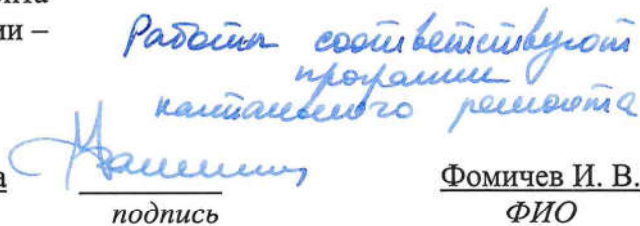 ии –
Работы соответствуют
программе
капитального ремонта
Фомичев И. В.
подпись
ФИО